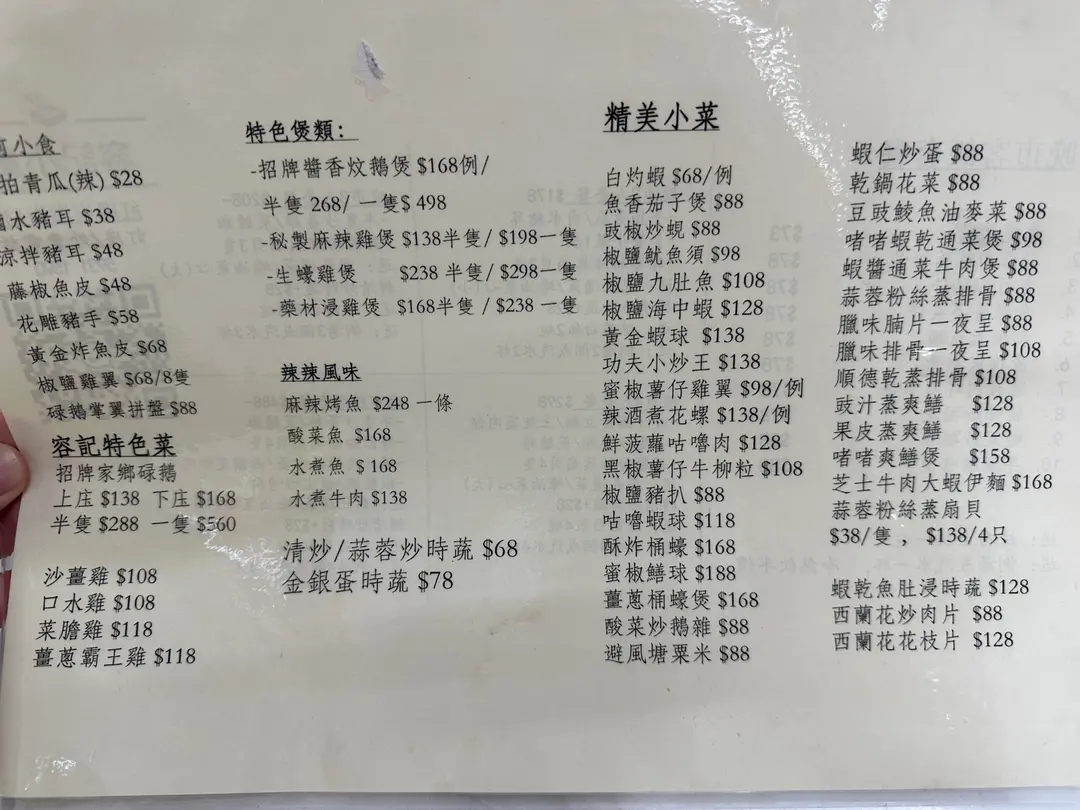 小食
拍青瓜(辣) $28
滷水豬耳 $38
涼拌豬耳 $48
藤椒魚皮 $48
花雕豬手 $58
黃金炸魚皮 $68
椒鹽雞翼 $68/8隻
碌鵝掌翼拼盤 $88
容記特色菜
招牌家鄉碌鵝
上庄 $138 下庄 $168
半隻 $288 一隻 $560
沙薑雞 $108
口水雞 $108
菜膽雞 $118
薑蔥霸王雞 $118
特色煲類：
-招牌醬香炆鵝煲 $168例/
半隻 268/ 一隻$ 498
-秘製麻辣雞煲 $138半隻/ $198一隻
-生蠔雞煲 $238 半隻/ $298一隻
-藥材浸雞煲 $168半隻 / $238 一隻
辣辣風味
麻辣烤魚 $248 一條
酸菜魚 $168
水煮魚 $ 168
水煮牛肉 $138
清炒/蒜蓉炒時蔬 $68
金銀蛋時蔬 $78
精美小菜
白灼蝦 $68/例
魚香茄子煲 $88
豉椒炒蜆 $88
椒鹽魷魚須 $98
椒鹽九肚魚 $108
椒鹽海中蝦 $128
黃金蝦球 $138
功夫小炒王 $138
蜜椒薯仔雞翼 $98/例
辣酒煮花螺 $138/例
鮮菠蘿咕嚕肉 $128
黑椒薯仔牛柳粒 $108
椒鹽豬扒 $88
咕嚕蝦球 $118
酥炸桶蠔 $168
蜜椒鱔球 $188
薑蔥桶蠔煲 $168
酸菜炒鵝雜 $88
避風塘粟米 $88
蝦仁炒蛋 $88
乾鍋花菜 $88
豆豉鯪魚油麥菜 $88
啫啫蝦乾通菜煲 $98
蝦醬通菜牛肉煲 $88
蒜蓉粉絲蒸排骨 $88
臘味腩片一夜呈 $88
臘味排骨一夜呈 $108
順德乾蒸排骨 $108
豉汁蒸爽鱔 $128
果皮蒸爽鱔 $128
啫啫爽鱔煲 $158
芝士牛肉大蝦伊麵 $168
蒜蓉粉絲蒸扇貝
$38/隻 , $138/4只
蝦乾魚肚浸時蔬 $128
西蘭花炒肉片 $88
西蘭花花枝片 $128